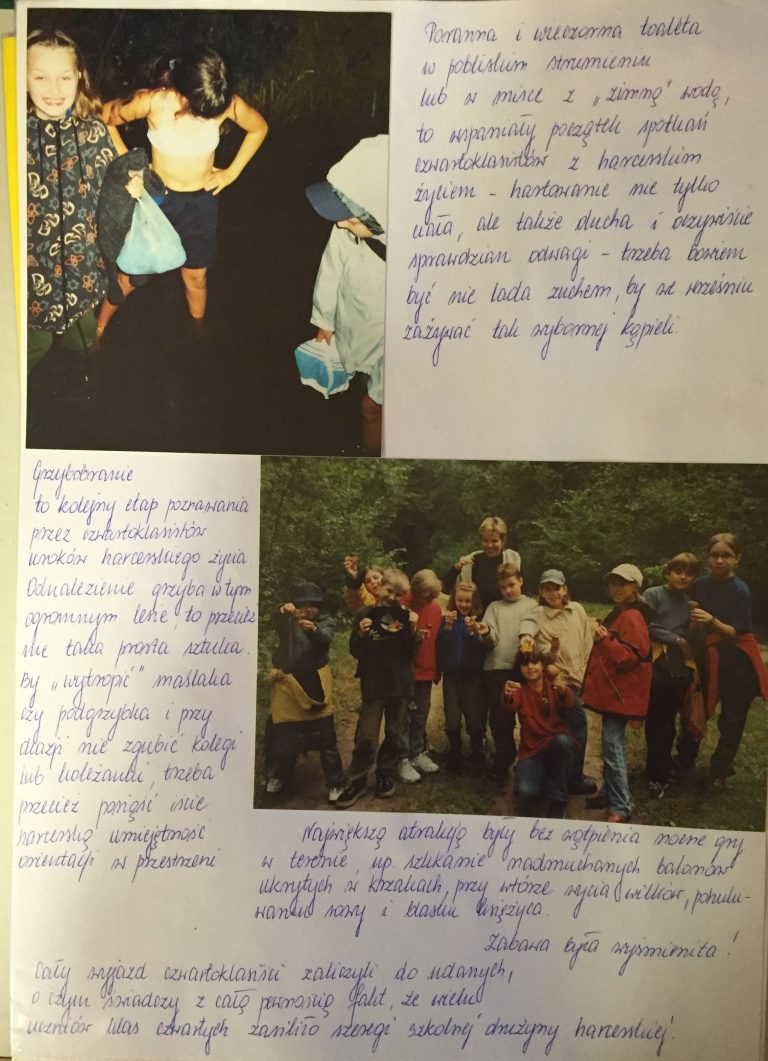 Poranna i wieczorna toaleta
w pobliskim strumieniu
lub w misce z „zimną" wodą,
to wspaniały początek spotkań
czwartoklasistów z harcerskim
życiem – hartowanie nie tylko
ciała, ale także ducha i oczywiście
sprawdzian odwagi – trzeba bowiem
być nie lada zuchem, by we wrześniu
zażywać tak wybornej kąpieli.
Grzybobranie
to kolejny etap poznawania
przez czwartoklasistów
uroków harcerskiego życia.
Odnalezienie grzyba w tym
ogromnym lesie, to przecież
nie taka prosta sztuka.
By „wytropić" maślaka
czy podgrzybka i przy
okazji nie zgubić kolegi
lub koleżanki, trzeba
przecież posiąść iście
harcerską umiejętność
orientacji w przestrzeni
Największą atrakcją były bez wątpienia nocne gry
w terenie, np. szukanie nadmuchanych balonów
ukrytych w krzakach, przy wtórze wycia wilków, pohuki-
waniu sowy i blasku księżyca.
Zabawa była wyśmienita!
Cały wyjazd czwartoklaniści zaliczyli do udanych,
o czym świadczy z całą pewnością fakt, że wielu
uczniów klas czwartych zasiliło szeregi szkolnej drużyny harcerskiej.